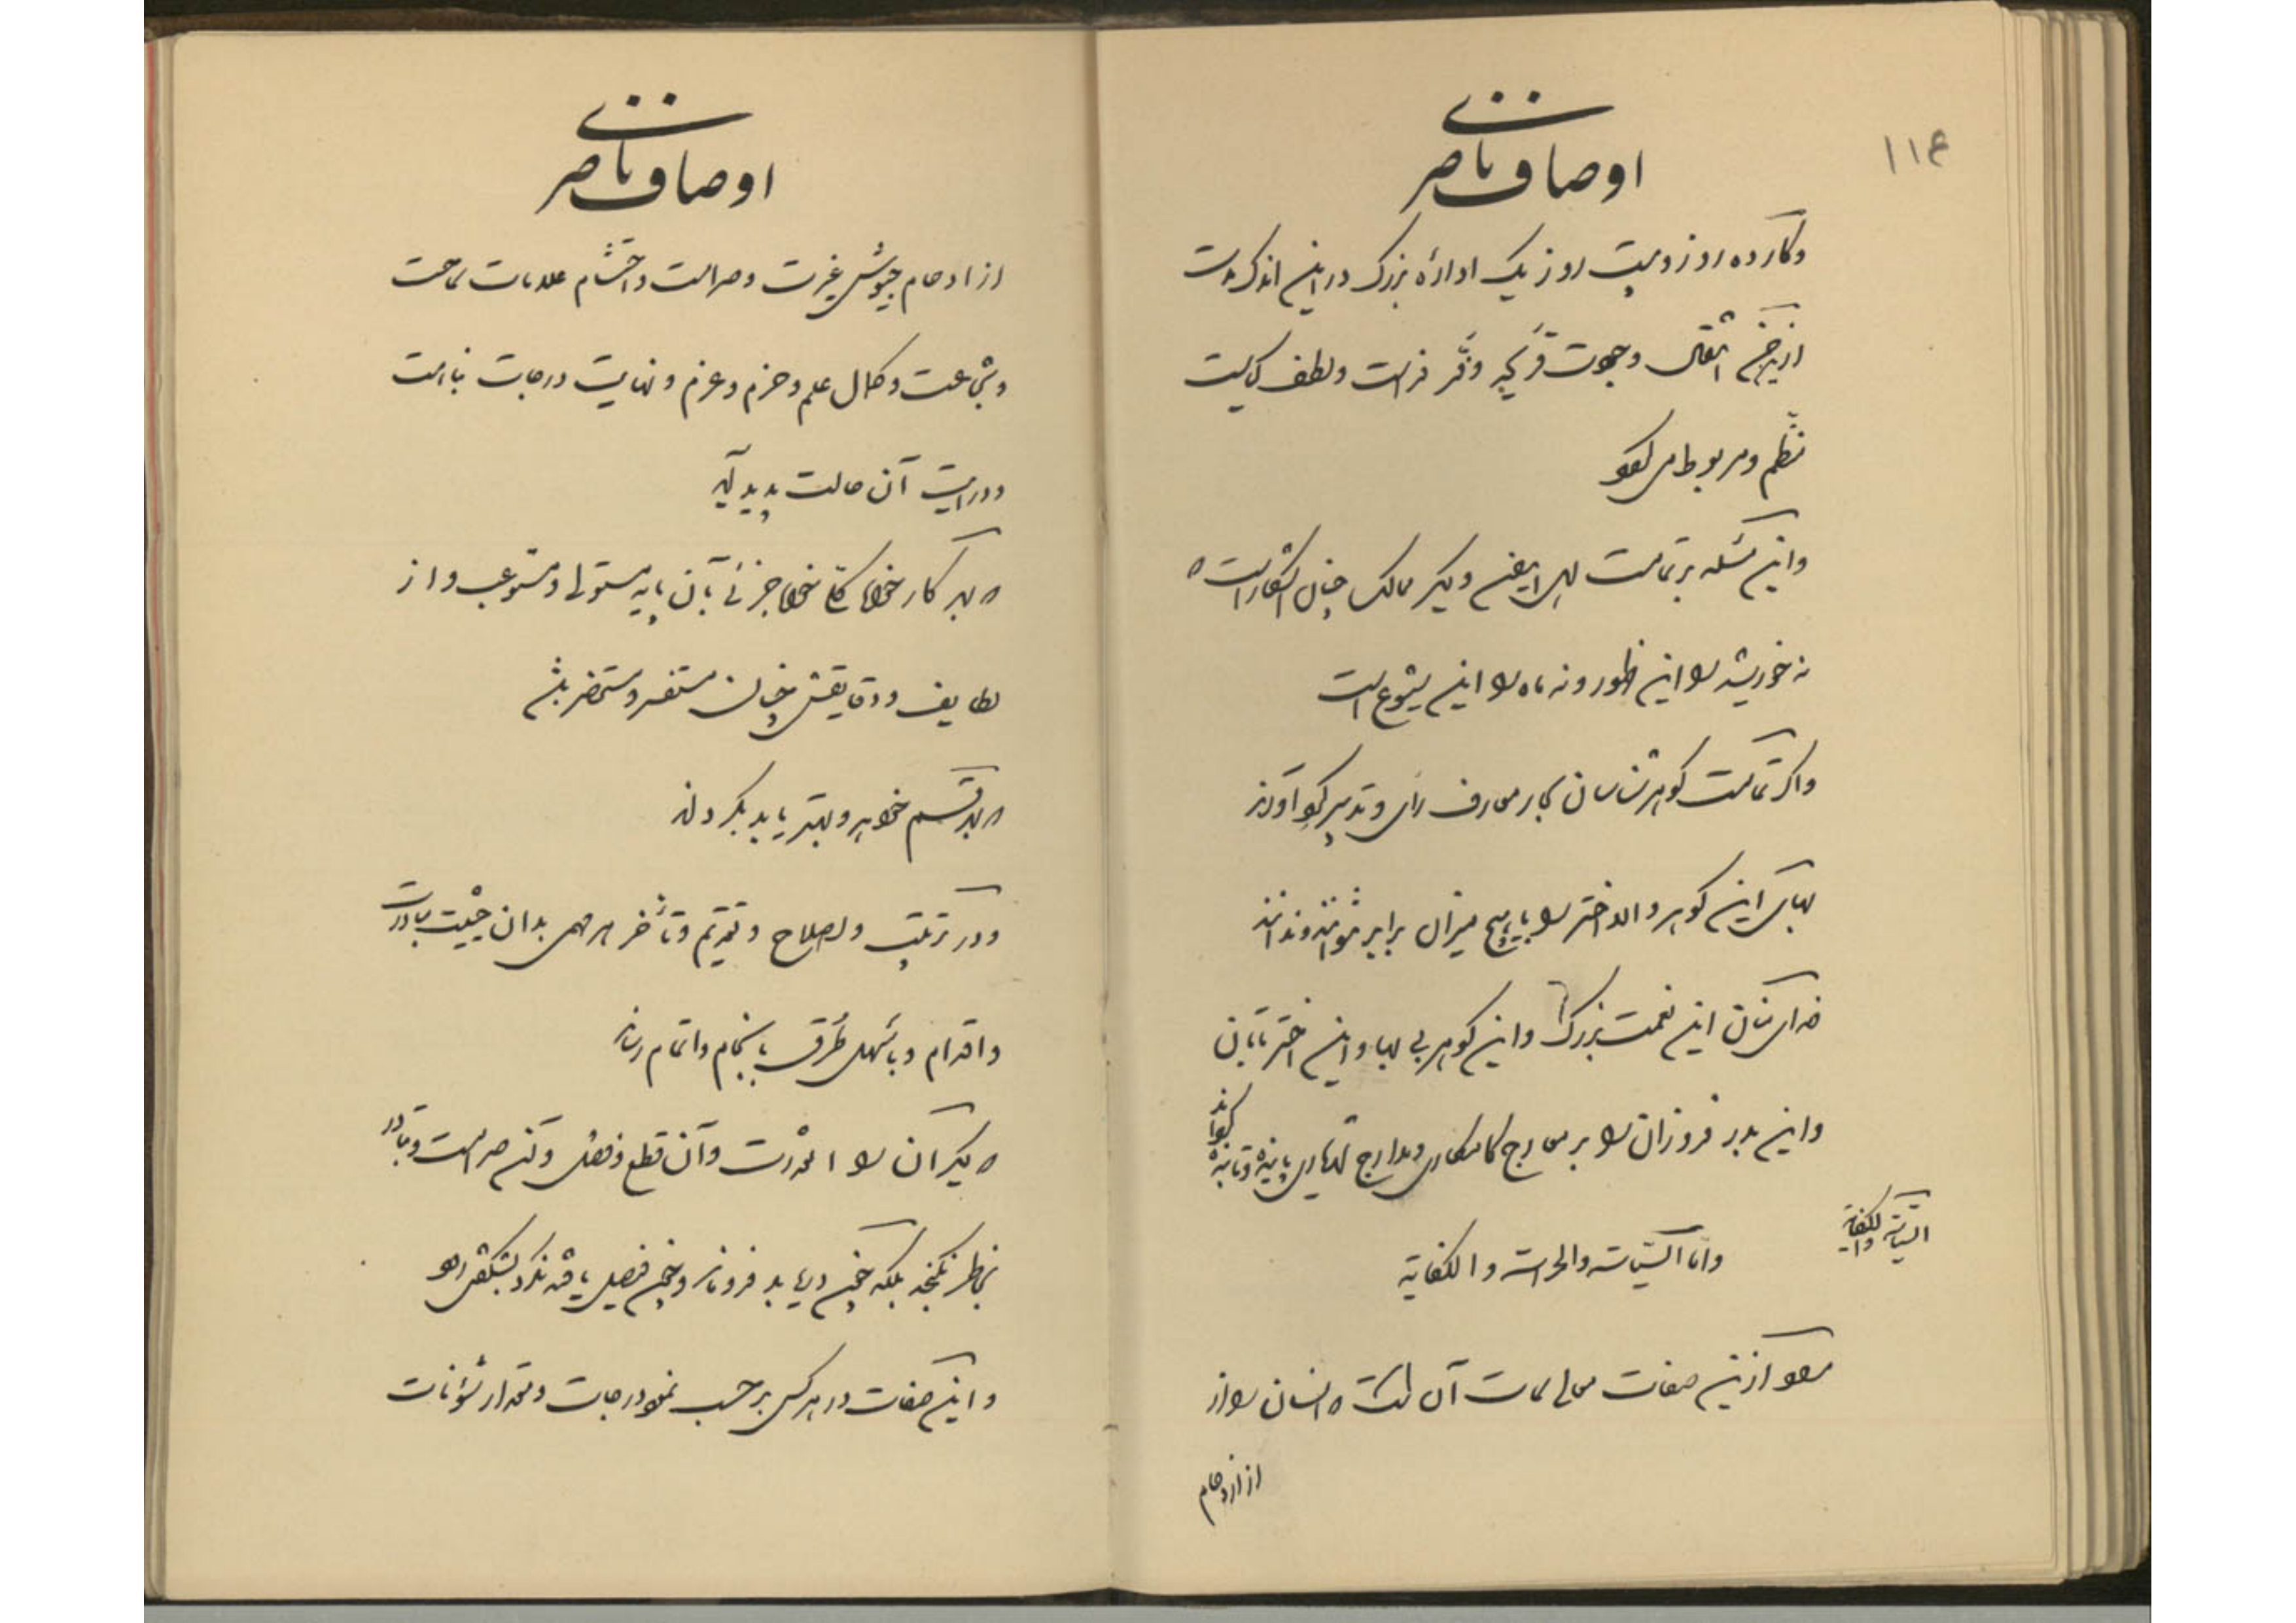 ۱۱۴
اوصاف ناصری
وکار ده روز و بیست روز یک اداره بزرگ در این اندک مدت
از این انتقال وجودت قریحه و فر فراست و لطف کیاست
منظم و مربوط می‌شود
و این مسئله بر تمامت اهل ایران و دیگر ممالک چنان آشکار است که
نه خورشید را این ظهور و نه ماه را این شیوع است
و اگر تمامت گوهرشناسان بکار معارف رأی و تدبیر گرد آورند
بهای این گوهر والا اختر را با هیچ میزان برابر نتوانند و ندانند
خدای منان این نعمت بزرگ و این گوهر بی بها و این اختر تابان
و این بدر فروزان را بر معارج کامکاری و مدارج پاینده و تابنده گرداند
السیاسة والکفایة
واما السیاسة والحراسة والکفایة
مقصود ازین صفات و سمات آن است که انسان را از
از ازدحام
اوصاف ناصری
از ازدحام جیوش غیرت و صرامت و احتشام علامات سماحت
و شجاعت و کمال علم و حزم و عزم و نهایت درجات نباهت
و درایت آن حالت پدید آید
که بهر کار خواه کلی خواه جزئی بآن پایه مستولی و مستوعب و از
لطایف و دقایقش چنان مستفسر و مستحضر باشد
که بهر قسم خواهد و بهتر باید بگرداند
و در ترتیب و اصلاح و تقدیم و تأخیر هر مهمی بدان حیثیت مبادرت
و اقدام و باسهل طرق بانجام و اتمام رساند
که دیگران را آن قدرت و آن قطع و فصل و آن صرامت و مبادرت
بخاطر نگنجد بلکه چون دریابد فرو ماند و چون فیصل یافته نگرد بشگفتی رود
و این صفات در هر کس بر حسب نمود درجات و مقدار شئونات